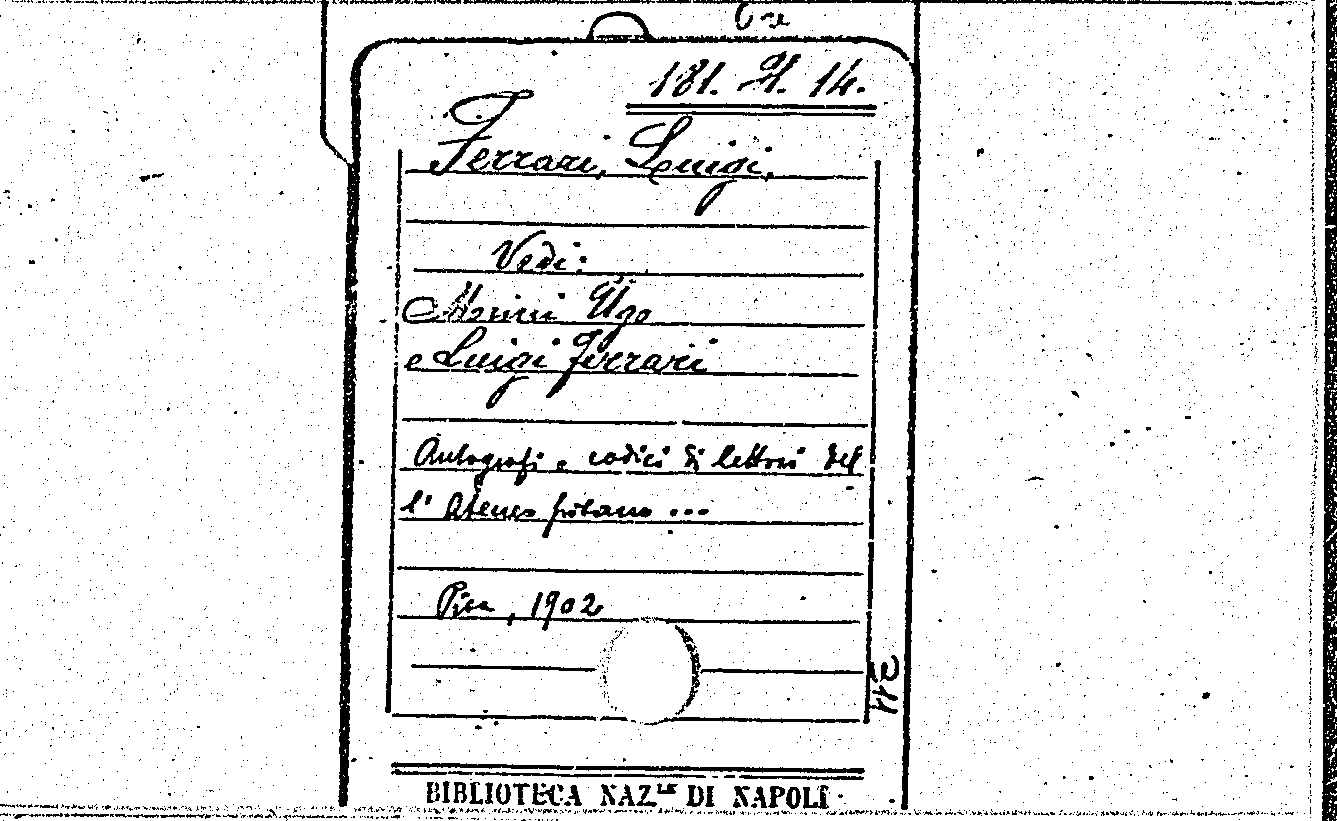 181. H. 14.
Ferrari, Luigi.
Vedi:
Morini Ugo
e Luigi Ferrari
Autografi e codici di lettori del
l'Ateneo pisano ...
Pisa, 1902
BIBLIOTECA NAZ.LE DI NAPOLI